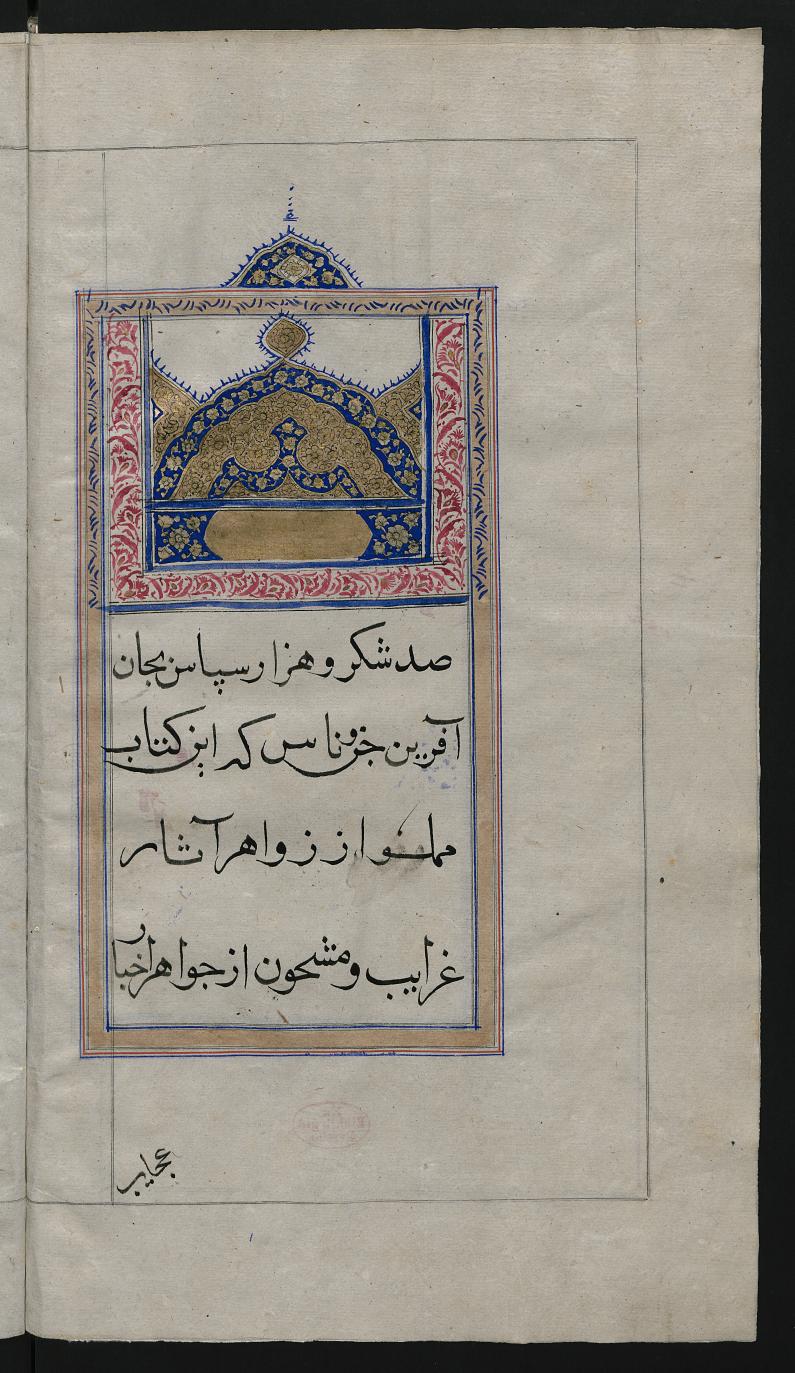 صد شکر و هزار سپاس بجان
آفرین جن و ناس که این کتاب
مملو از زواهر آثار
غرایب و مشحون از جواهر اخبار
عجایب